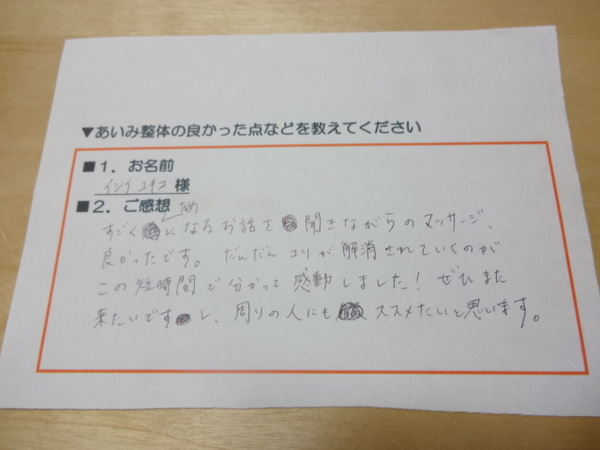 ▼あいみ整体の良かった点などを教えてください
■1．お名前
様
■2．ご感想
ため
すごく になるお話を 聞きながらのマッサージ、
良かったです。だんだんコリが解消されていくのが
この短時間で分かって感動しました！ぜひまた
来たいです し、周りの人にも ススメたいと思います。